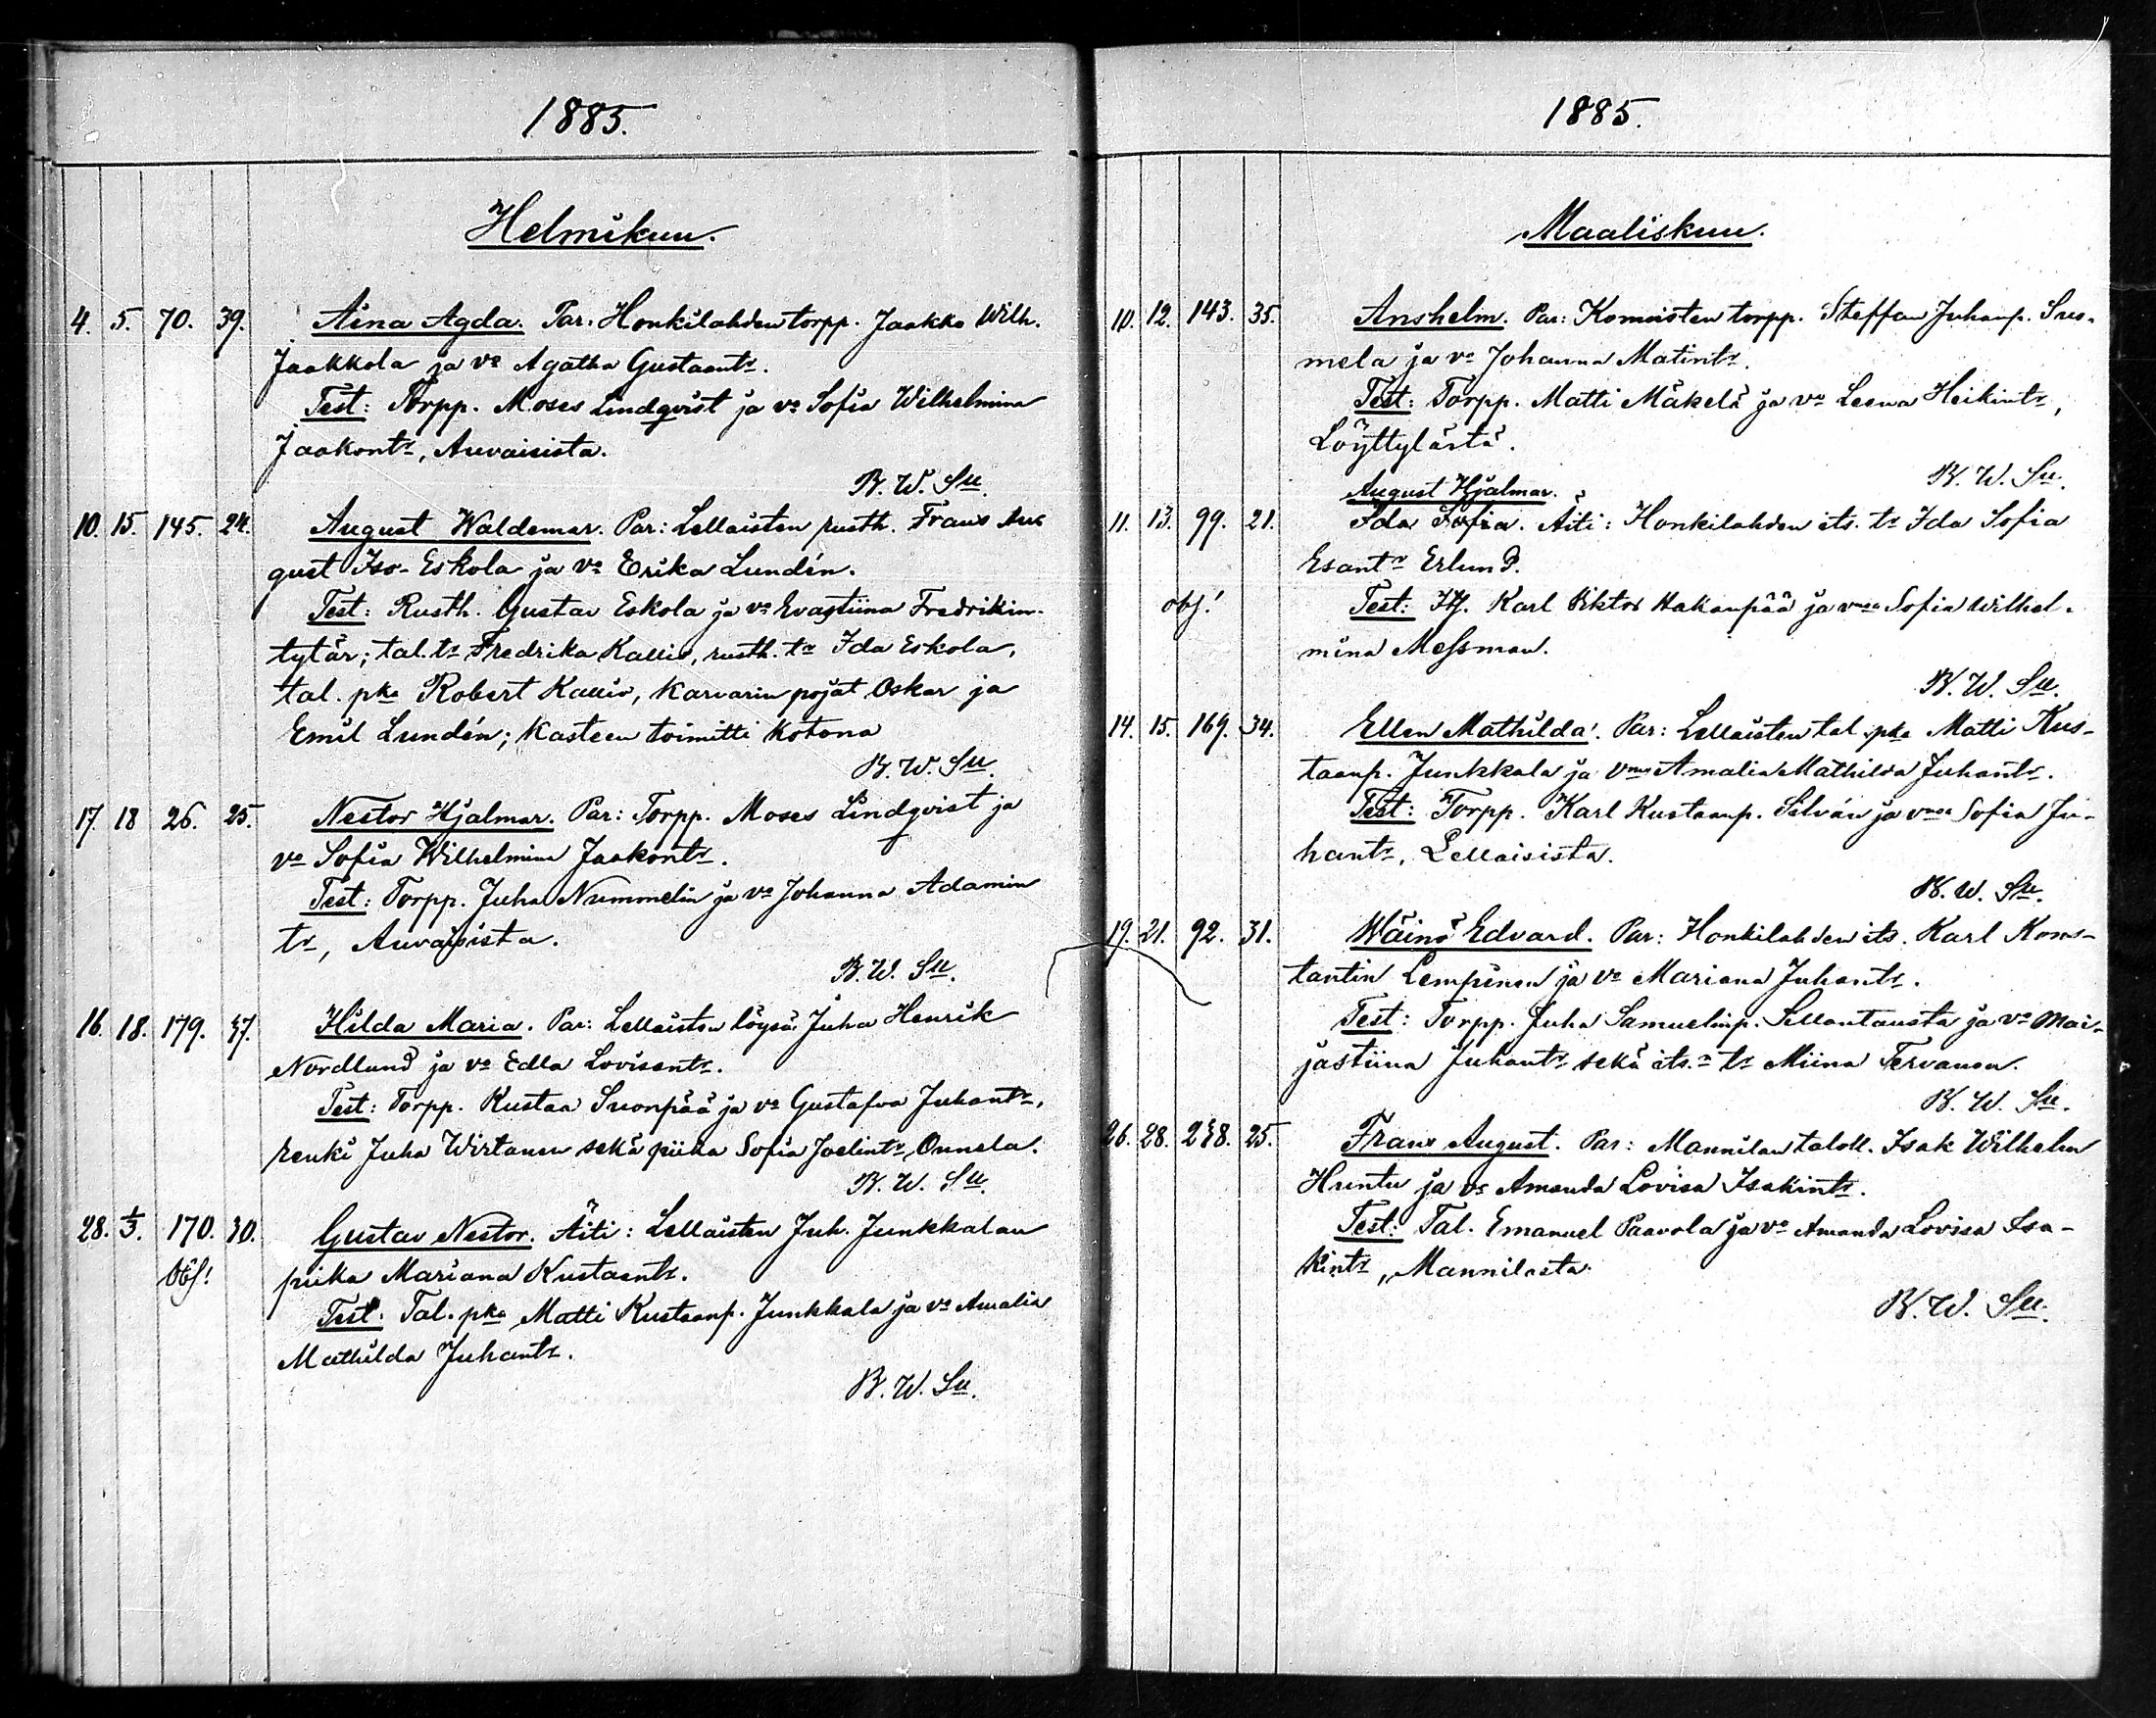 1885.
Helmikuu.
4. 5. 70. 39. Aina Agda. Par: Honkilahden torpp. Jaakko Wilh.
Jaakkola ja vo Agatha Gustaantr.
Test: Torpp. Moses Lindqvist ja vo Sofia Wilhelmina
Jaakontr, Auvaisista.
B. W. Su.
10. 15. 145. 24. August Waldemar. Par: Lellaisten rusth. Frans Au-
gust Iso-Eskola ja vo Erika Lundén.
Test: Rusth. Gustav Eskola ja vo Evastiina Fredrikin-
tytär; tal. tr Fredrika Kallio, rusth. tr Ida Eskola,
tal. pka Robert Kallio, Karvarin pojat Oskar ja
Emil Lundén; Kasteen toimitti kotona
B. W. Su.
17. 18 26. 25. Nestor Hjalmar. Par: Torpp. Moses Lindqvist ja
vo Sofia Wilhelmina Jaakontr.
Test: Torpp. Juha Nummelin ja vo Johanna Adamin
tr, Auvaisista.
B. W. Su.
16. 18. 179. 37. Hilda Maria. Par: Lellaisten löysä Juha Henrik
Nordlund ja vo Edla Lovisantr.
Test: Torpp. Kustaa Suonpää ja vo Gustafva Juhantr,
renki Juha Wirtanen sekä piika Sofia Joelintr, Onnela.
B. W. Su.
28. 1/3. 170. 30. Gustav Nestor. Äiti: Lellaisten Juh. Junkkalan
Obs! piika Mariana Kustaantr.
Test: Tal. pka Matti Kustaanp. Junkkala ja vo Amalia
Mathilda Juhantr.
B. W. Su.
1885.
Maaliskuu.
10. 12. 143. 35. Anshelm. Par: Komoisten torpp. Steffan Juhanp. Suo-
mela ja vo Johanna Matintr.
Test: Torpp. Matti Mäkelä ja vo Leena Heikintr,
Löyttylästä.
B. W. Su.
August Hjalmar.
11. 13. 99. 21. Ida Sofia. Äiti: Honkilahden its. tr Ida Sofia
Esantr Erlund.
obs! Test: Itj. Karl Viktor Hakanpää ja vmo Sofia Wilhel-
mina Messman.
B. W. Su.
14. 15. 169. 34. Ellen Mathilda. Par: Lellaisten tal. pka Matti Kus-
taanp. Junkkala ja vmo Amalia Mathilda Juhantr.
Test: Torpp. Karl Kustaanp. Silván ja vmo Sofia Ju-
hantr, Lellaisista.
B. W. Su.
19. 21. 92. 31. Wäinö Edvard. Par: Honkilahden its. Karl Kons-
tantin Lempinen ja vo Mariana Juhantr.
Test: Torpp. Juha Samuelinp. Sillantausta ja vo Mai-
jastiina Juhantr sekä its. tr Miina Tervanen.
B. W. Su.
26. 28. 238. 25. Frans August. Par: Mannilan taloll. Isak Wilhelm
Huntu ja vo Amanda Lovisa Isakintr.
Test: Tal. Emanuel Paavola ja vo Amanda Lovisa Isa-
kintr, Mannilasta.
B. W. Su.